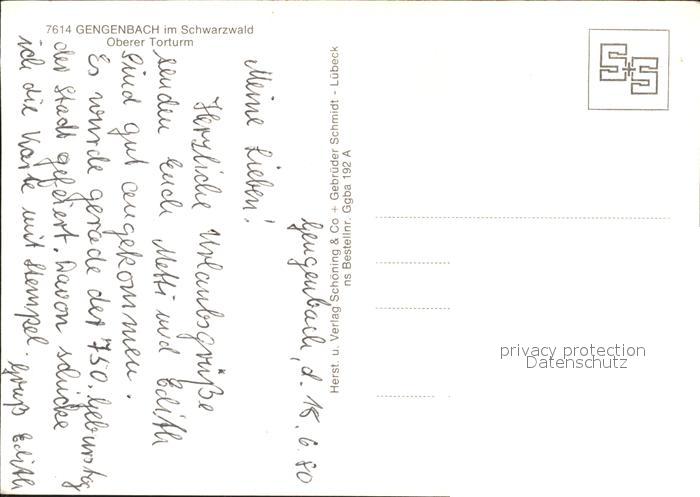 7614 GENGENBACH im Schwarzwald
Oberer Torturm
Gengenbach, d. 15.6.80
Meine Lieben!
Herzliche Urlaubsgrüße
senden Euch Metti und Edith
Sind gut angekommen.
Es wurde gerade der 750. Geburstag
der Stadt gefeiert. Davon schicke
ich die Karte mit Stempel. Gruß Edith
Herst. u. Verlag Schöning & Co + Gebrüder Schmidt - Lübeck
ns Bestellnr. Ggba 192 A
S+S
privacy protection
Datenschutz